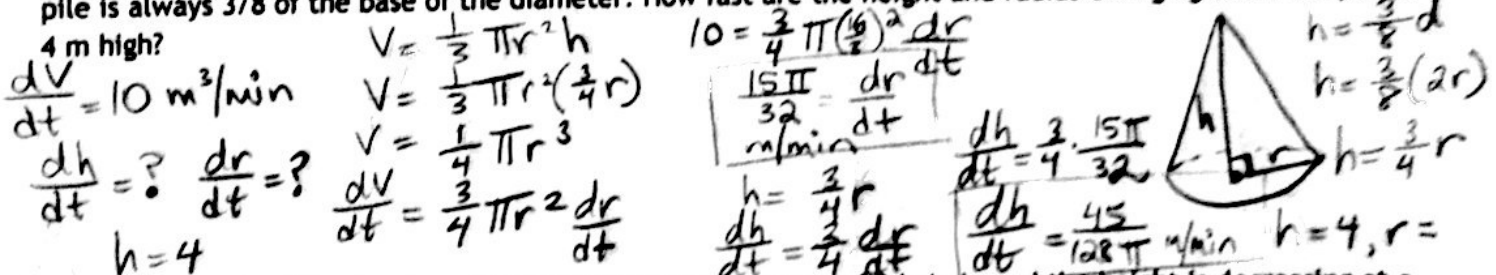 pile is always 3/8 of the base of the diameter.
4 m high?
dV/dt = 10 m³/min
dh/dt = ? dr/dt = ?
h = 4
V = 1/3 πr²h
V = 1/3 πr²(3/4 r)
V = 1/4 πr³
dV/dt = 3/4 πr² dr/dt
10 = 3/4 π(16/3)² dr/dt
15π/32 = dr/dt
m/min
h = 3/4 r
dh/dt = 3/4 dr/dt
dh/dt = 3/4 · 15π/32
dh/dt = 45/128 π m/min
h
r
h = 3/8 d
h = 3/8 (2r)
h = 3/4 r
h = 4, r =